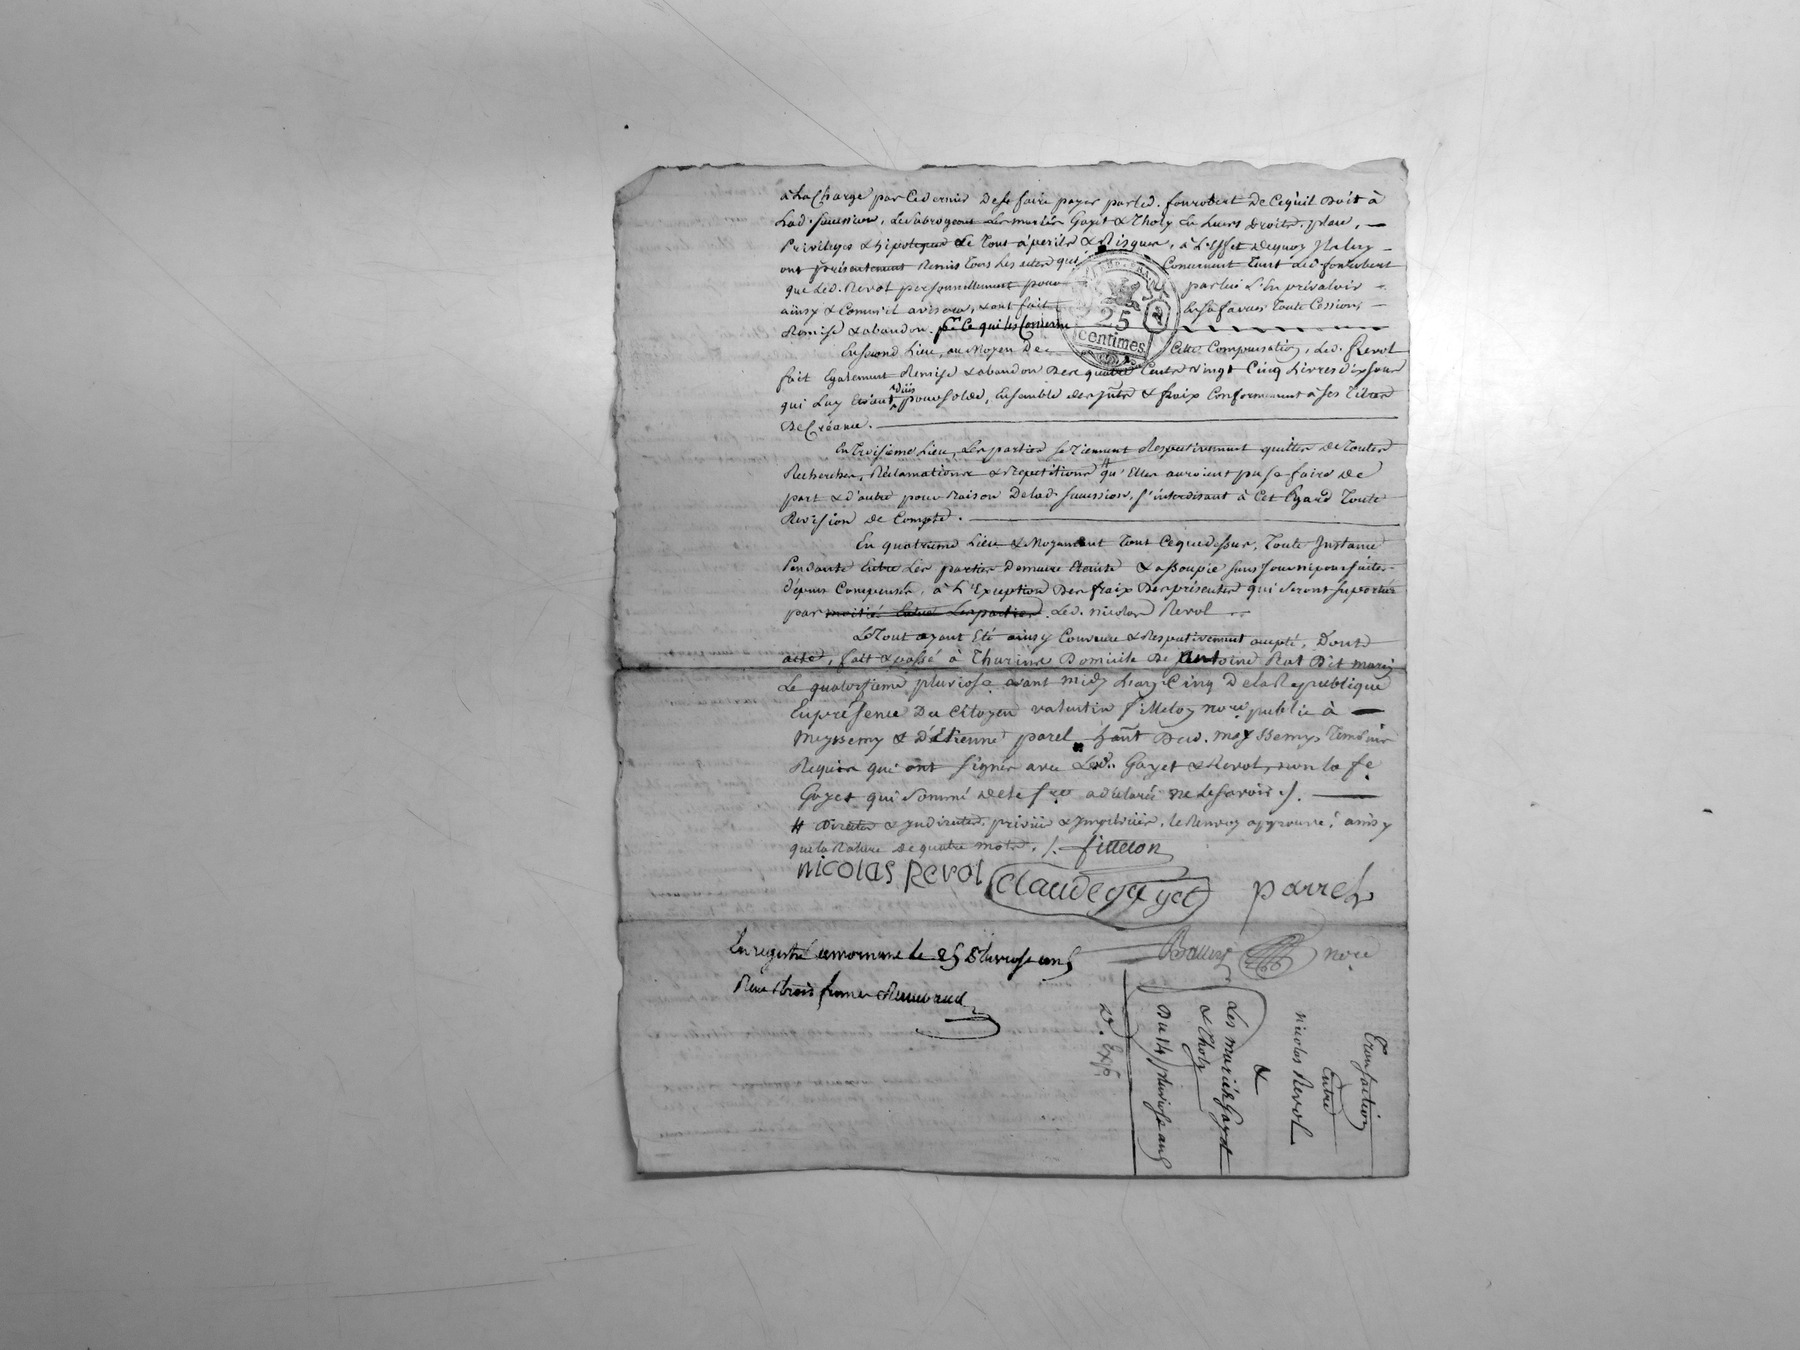 à La Charge par Ce dernier de se faire payer par led. fourobert de Ce qu'il Doit à
Lad. succession, les subrogeant les mariés Gayet & Tholy En Leurs droits, place,
Privileges & hipoteques de Tout à perils & Risques, à L'effet de quoy Ils luy
ont présentement Remis Tous Les actes qui Concernent Tant led. fourobert
que led. Revol personnellement pour par lui s'En prévaloir
ainsy & Comm'il avisera, & ont fait En sa faveur Toute Cession,
Remise & abandon. pr. Ce qui les Concerne
En second Lieu, au Moyen De Cette Compensation, Led. Revol
fait Egalement Remise & abandon Des quatre Cents vingt Cinq Livres
qui Luy Etoient dues pour solde, Ensemble des Intr. & fraix Conformement à ses Titres
De Créance.
En Troisieme Lieu, Les parties se Tiennent Respectivement quittes de Toutes
Recherches, Réclamations & Repetitions # qu'Elles auroient pu se faire de
part & d'autre pour Raison De lad. succession, s'interdisant à Cet Egard Toute
Revision de Compte.
En quatrieme Lieu & Moyennant Tout Ce que dessus, Toute Instance
Pendante Entre Les parties Demeure Eteinte & assoupie sans pouvoir
dépens Compensés, à L'Exception Des fraix Des présentes qui seront suportés
par moitié Entre Les parties. Led. Nicolas Revol
Le Tout ayant Eté ainsy Convenu & Respectivement accepté, Dont
acte, fait & passé à Thurins Domicile De Antoine Rat Dit
Le quatorzieme pluviose avant midy L'an Cinq De la Republique
En présence Du Citoyen valentin fitteloy nore. public à
Meyssemy & d'Etienne parel hant. Dud. Meyssemy Temoins
Requis qui ont signés avec Led. Gayet & Revol, non la fe.
Gayet qui sommé de le fre. a déclaré ne Le savoir ./.
# directes & Indirectes, & Imprévues. le Renvoy approuvé, ainsy
que la Rature de quatre mots ./. fitteloy
nicolas Revol Claude gayet parrel
nore
Enregistré a mornant le 25 Pluviose an 5
Reçu trois francs
Transaction
Entre
Nicolas Revol
&
Les mariés Gayet
& Tholy
Du 14 pluviose an 5
D. Exp.
25
centimes